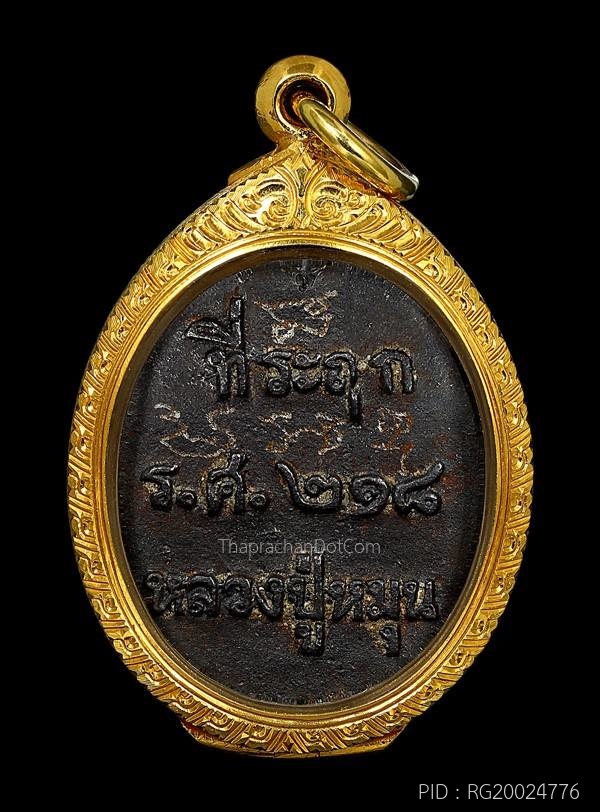 ที่ระฤก
ร.ศ. ๒๑๘
ThaprachanDotCom
หลวงปู่หมุน
PID : RG20024776